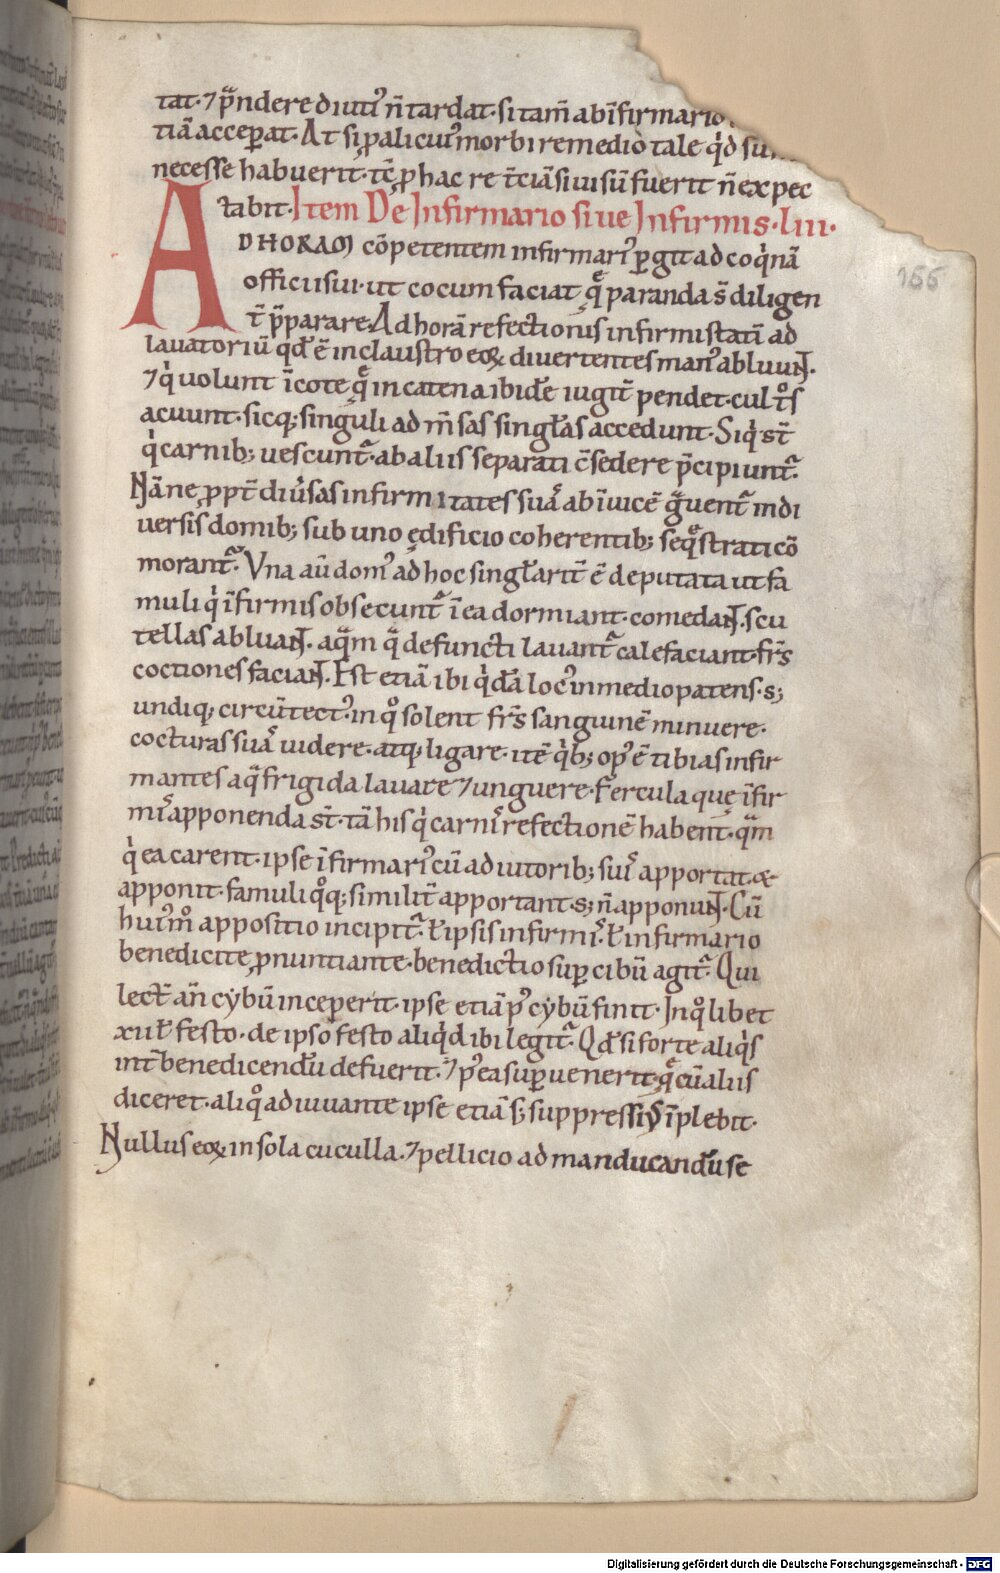 tat· ⁊ p̄ndere diuti᾽ n̄ tardat· si tam̄ ab īfirmario
tiā acceꝑat· At si ꝓ alicui᾽ morbi remedio tale q̇d su
necesse habuerit· tc̄ ꝓ hac re t̄ciā siui sū fuerit n̄ expec
tabit· Item De Infirmario siue Infirmis· LIII·
AD HORAM cōpetentem infirmari᾽ ꝑgit ad coq̇nā
officii sui· ut cocum faciat q̄ paranda s̄ diligen
t̄ p̄parare· Ad horā refectionis infirmi statī ad
lauatoriū qd̄ ē in claustro eoꝝ diuertentes man᾽ abluunt·
⁊ q̇ uolunt ī cote q̄ in catena ibidē iugit̄ pendet· cultos
acuunt· sicq; singuli ad m̄sas singłas accedunt· Siq̇ st̄
q̇ carnib; uescunt᷑· ab aliis separati c̄sedere p̄cipiunt᷑·
Nā ne ꝓpt̄ diūsas infirmitates suas ab īuicē g̊uent᷑ in di
uersis domib; sub uno ędificio coherentib; seq̄strati cō
morant᷑· Vna aū dom᾽ ad hoc singłarit̄ ē deputata ut fa
muli q̇ īfirmis obsecunt᷑ ī ea dormiant· comedant· scu
tellas abluant· aq̄m q̄ defuncti lauant᷑ calefaciant· fr̄s
coctiones faciant· Est etiā ibi q̇dā loc᾽ in medio patens· s;
undiq; circūtect᾽ in q̊ solent fr̄s sanguinē minuere·
cocturas suas uidere· atq; ligare· itē q̇b; op᾽ ē tibias infir
mantes aq̄ frigida lauare ⁊ unguere· Fercula quę īfir
mis apponenda st̄· tā his q̇ carnis refectionē habent· q̄m
q̇ ea carent· ipse īfirmari᾽ cū adiutorib; suis apportat· &
apponit· famuli q̊q; similit̄ apportant· s; n̄ apponunt· Cū
hui᾽m̊ appositio incipit᷑· ł ipsis infirmis· ł infirmario
benedicite ꝓnuntiante· benedictio suꝑ cibū agit᷑· Qui
lect̄ an̄ cybū inceperit· ipse etiā p᾽ cybū finit· In q̊libet
xii ł festo· de ipso festo aliq̇d ibi legit᷑· Qd̄ si forte aliq̇s
int̄ benedicendū defuerit· ⁊ p᾽ea suꝑuenerit· q̄ cū aliis
diceret· aliq̊ adiuuante ipse etiā s; suppressi᾽ īplebit·
Nullus eoꝝ in sola cuculla· ⁊ pellicio ad manducandū se
166
Digitalisierung gefördert durch die Deutsche Forschungsgemeinschaft - DFG